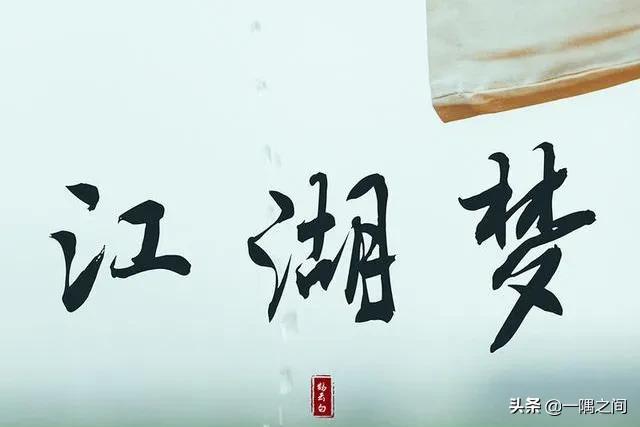 江湖梦
头条 @一隅之间